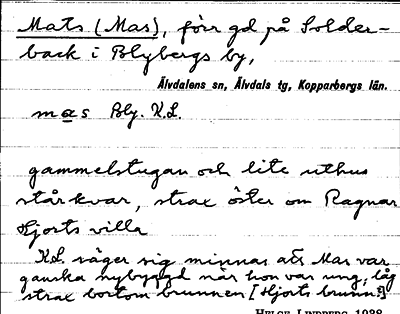 Mats (Mas), förr gd på Solder-
back i Blybergs by,
Älvdalens sn, Älvdals tg, Kopparbergs län.
mas Bly. K.L.
gammelstugan och lite uthus
står kvar, strax öster om Ragnar
Hjorts villa
K.L. säger sig minnas att Mas var
ganska nybyggd när hon var ung, låg
strax bortom brunnen [Hjorts brunn?]
HELGE LINDBERG 1988